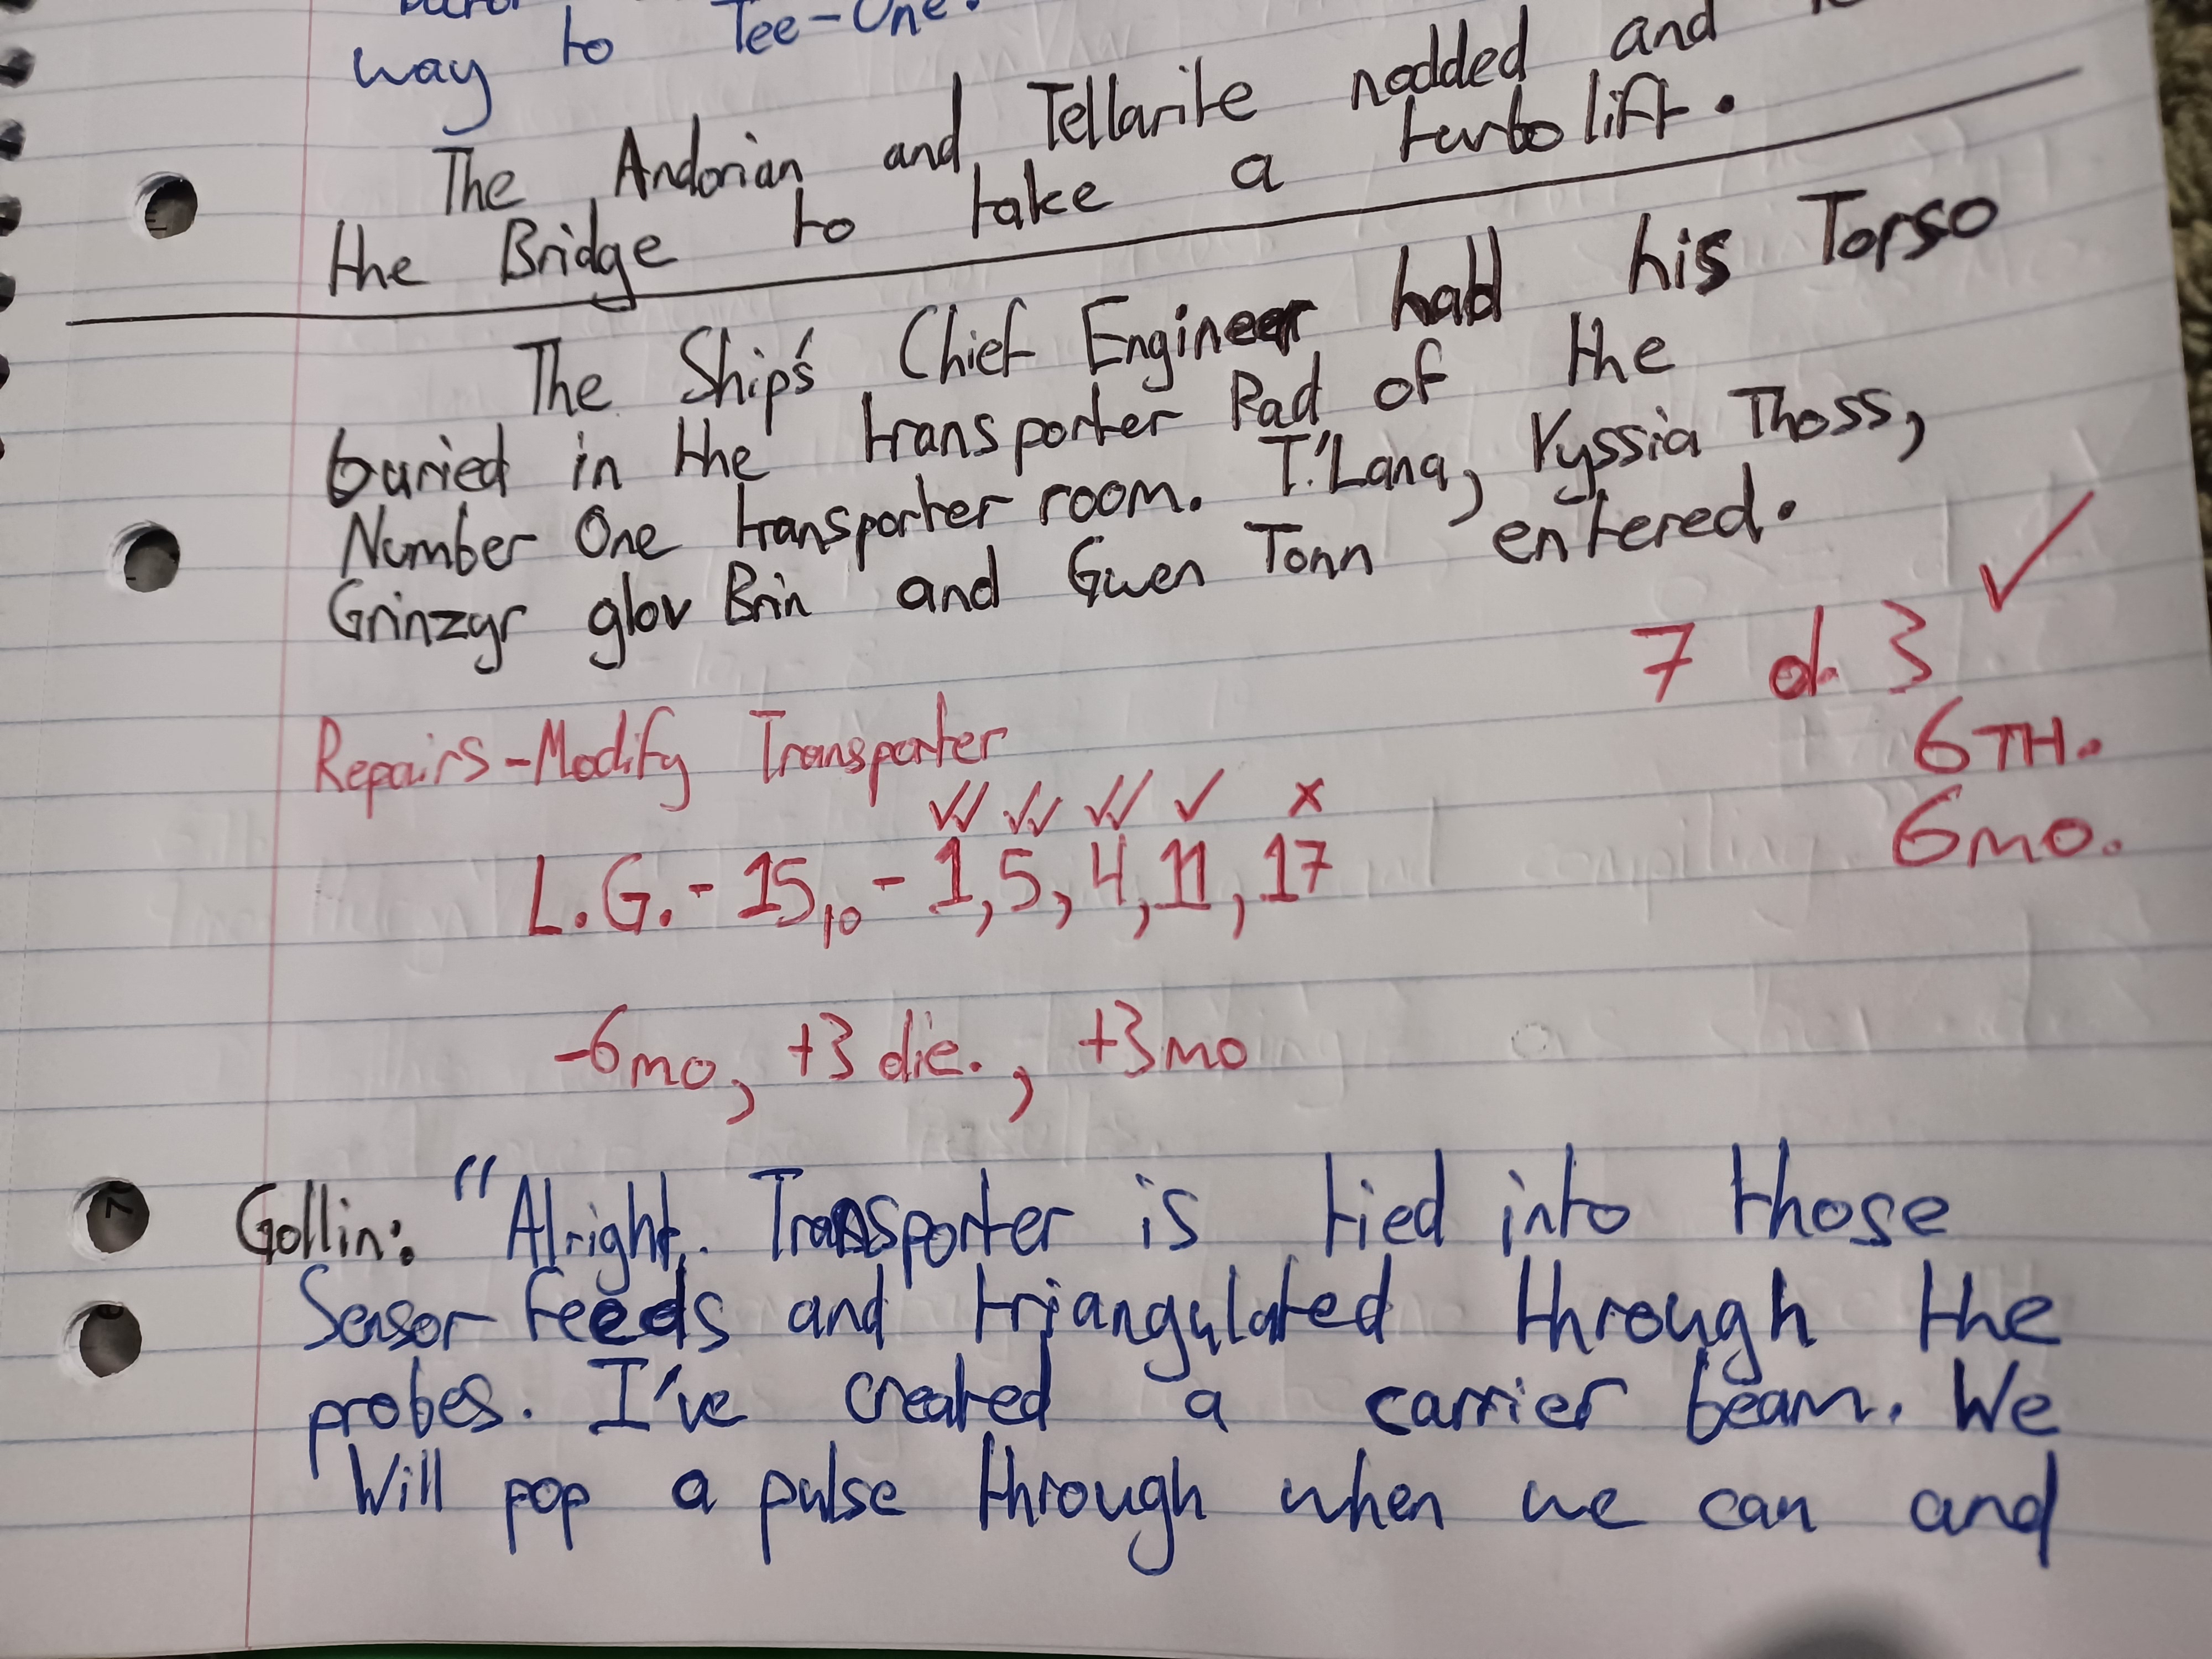 way to Tee-One.
The Andorian and Tellarite nodded and
the Bridge to take a turbolift.
The Ship's Chief Engineer had his Torso
buried in the transporter Pad of the
Number One transporter room. T'Lana, Vyssia Thoss,
Grinzyr glov Brin and Gwen Tonn entered.
7 d. 3 ✓
6TH.
6mo.
Repairs-Modify Transporter
✓✓ ✓✓ ✓✓ ✓ x
L.G. - 15,10 - 1, 5, 4, 11, 17
-6mo, +3 die., +3mo
Gollin: "Alright. Transporter is tied into those
Sensor feeds and triangulated through the
probes. I've created a carrier beam. We
Will pop a pulse through when we can and